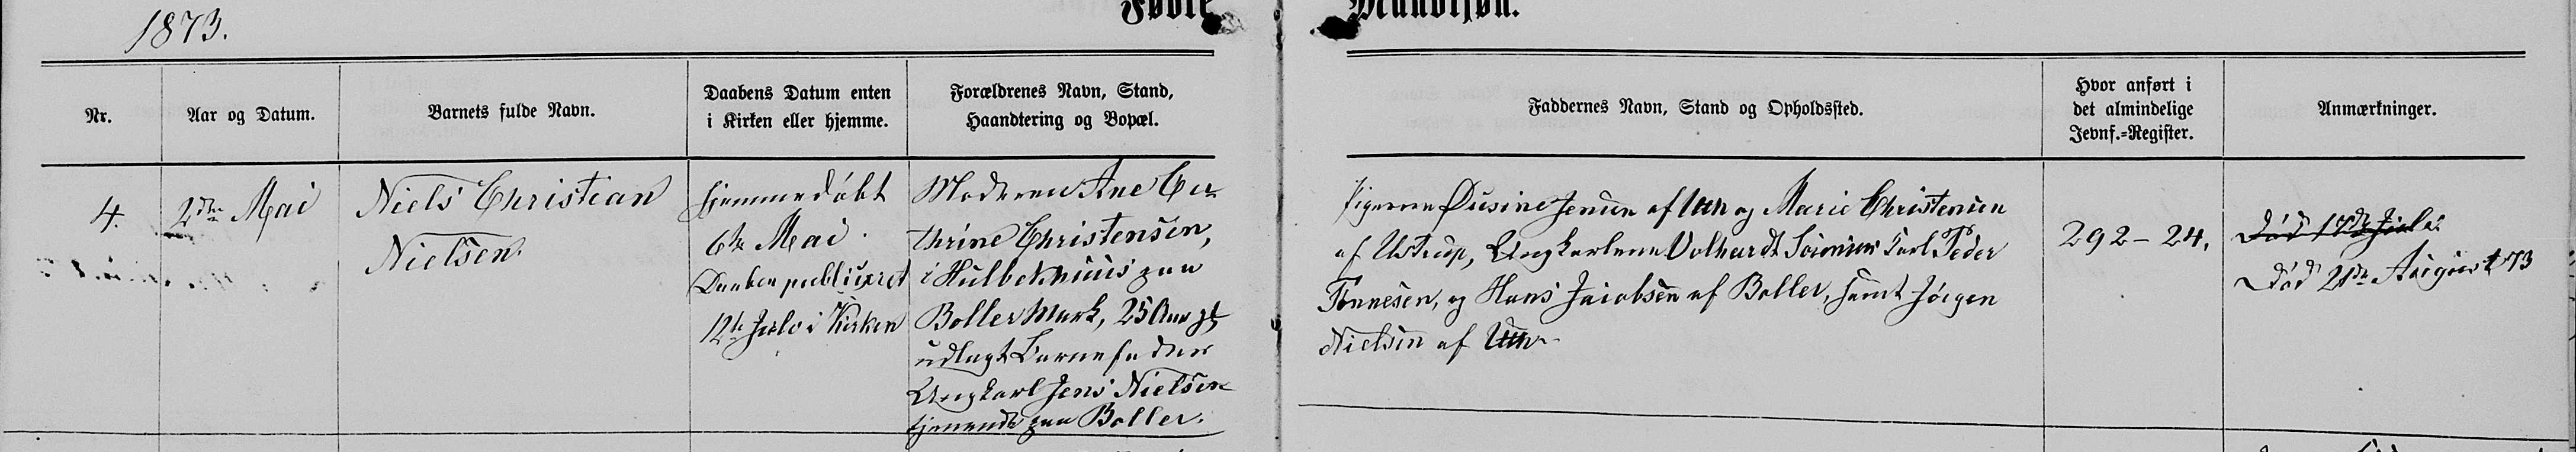 1873.
Fødte Mandkjøn.
Nr.
Aar og Datum.
Barnets fulde Navn.
Daabens Datum enten
i Kirken eller hjemme.
Forældrenes Navn, Stand,
Haandtering og Bopæl.
Faddernes Navn, Stand og Opholdssted.
Hvor anført i
det almindelige
Jevnf.=Register.
Anmærkninger.
4.
2den Mai
Niels Christian
Nielsen.
hjemmedøbt
6te Mai.
Daaben publiceret
12te Julo i Kirken
Moderen Ane Ca-
thrine Christensen,
i Hulbekhuus paa
Boller Mark, 25 Aar gl
udlagt Barnefader
Ungkarl Jens Nielsen
tjenende paa Boller.
Pigerne Jensen af Uth og Marie Christensen
af Ustrup, Ungkarlene Volhardt Carl Peder
Tønnesen, og Hans Jacobsen af Boller, samt Jørgen
Nielsen af Uth.
292-24.
Død
Død 21de August 73